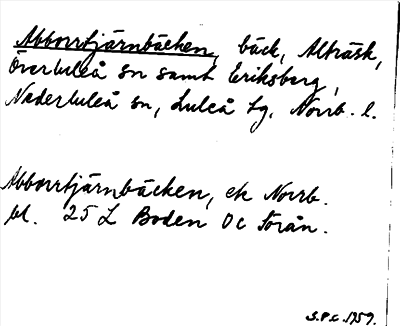 Abborrtjärnbäcken, bäck, Alträsk,
Överluleå sn samt Eriksberg,
Nederluleå sn, Luleå tg, Norrb. l.
Abborrtjärnbäcken, ek Norrb.
bl. 25 L Boden OC Torån.
S.P.C. 1959.